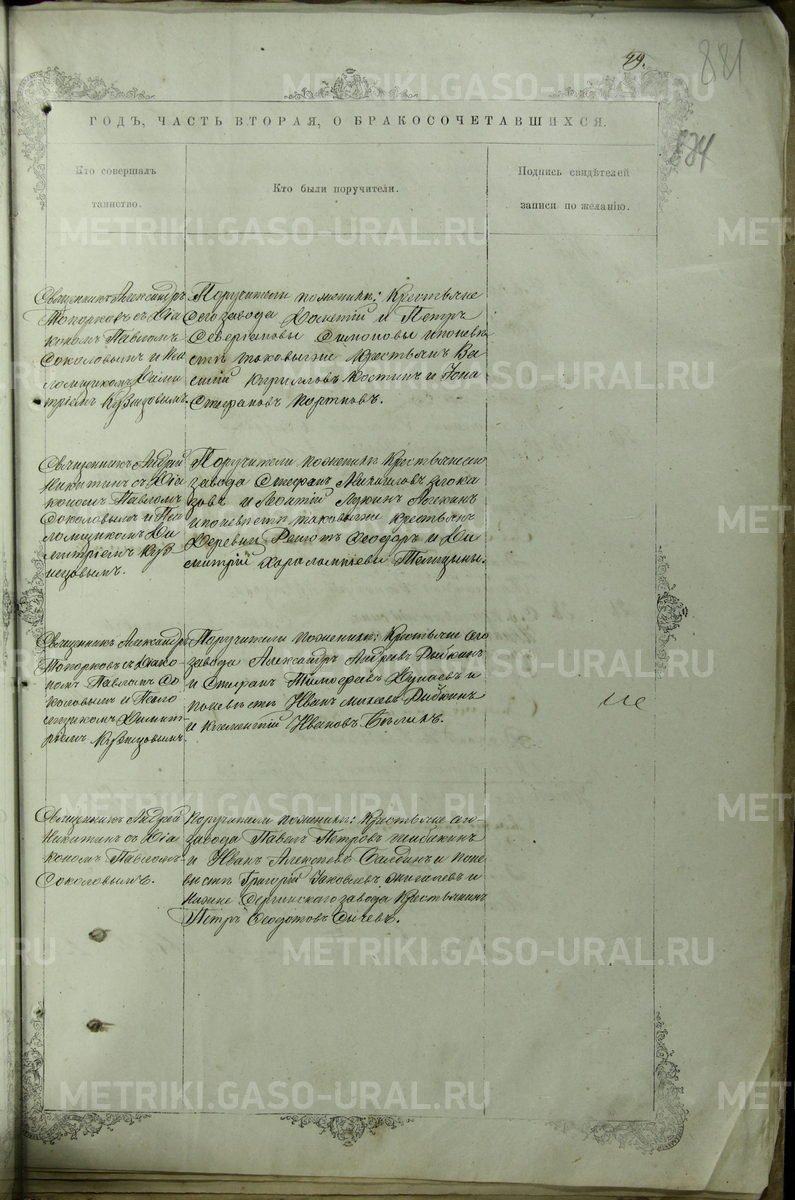 49.
881
874
METRIKI.GASO-URAL.RU
ГОДЪ, ЧАСТЬ ВТОРАЯ, О БРАКОСОЧЕТАВШИХСЯ.
Кто совершалъ
таинство.
Кто были поручители.
Подпись свидѣтелей
записи по желанію.
Священникъ Александръ
Топорковъ съ Діа
кономъ Павломъ
Соколовымъ и Пса
ломщикомъ Дими
тріемъ Кузнецовымъ.
Поручители по женихѣ: Крестьяне
сего завода и Петръ
Северіановы и по невѣ
стѣ таковыже Крестьян Ва
силій Кирилловъ Костинъ и Іона
Стефановъ Портновъ.
Священникъ Андрей
Никитинъ съ Діа
кономъ Павломъ
Соколовымъ и Пса
ломщикомъ Ди
митріемъ Куз
нецовымъ.
Поручители по женихѣ Крестьяне сего
завода Стефанъ Михаиловъ
и Лукинъ
и по невѣстѣ таковыже крестьян
Деревни Решотъ Ѳеодоръ и Ди
митрій Харалампіевы Телицыны.
Священникъ Александръ
Топорковъ съ Діако
номъ Павломъ Со
коловымъ и Псало
мщикомъ Димит
ріемъ Кузнецовымъ.
Поручители по женихѣ: Крестьяне сего
завода Александръ Андреевъ Рыбкинъ
и Стефанъ Тимофеевъ Дунаевъ и
по невѣстѣ Иванъ Михеевъ Рыбкинъ
и Климентій Ивановъ
Священникъ Андрей
Никитинъ съ Діа
кономъ Павломъ
Соколовымъ.
Поручители по женихѣ: Крестьяне сего
завода Павелъ Петровъ
и Иванъ Алексѣевъ и по не
вѣстѣ Григорій Яковлевъ Жигалевъ и
Нижне Сергинскаго завода Крестьянинъ
Петръ Ѳеодотовъ Сычевъ.